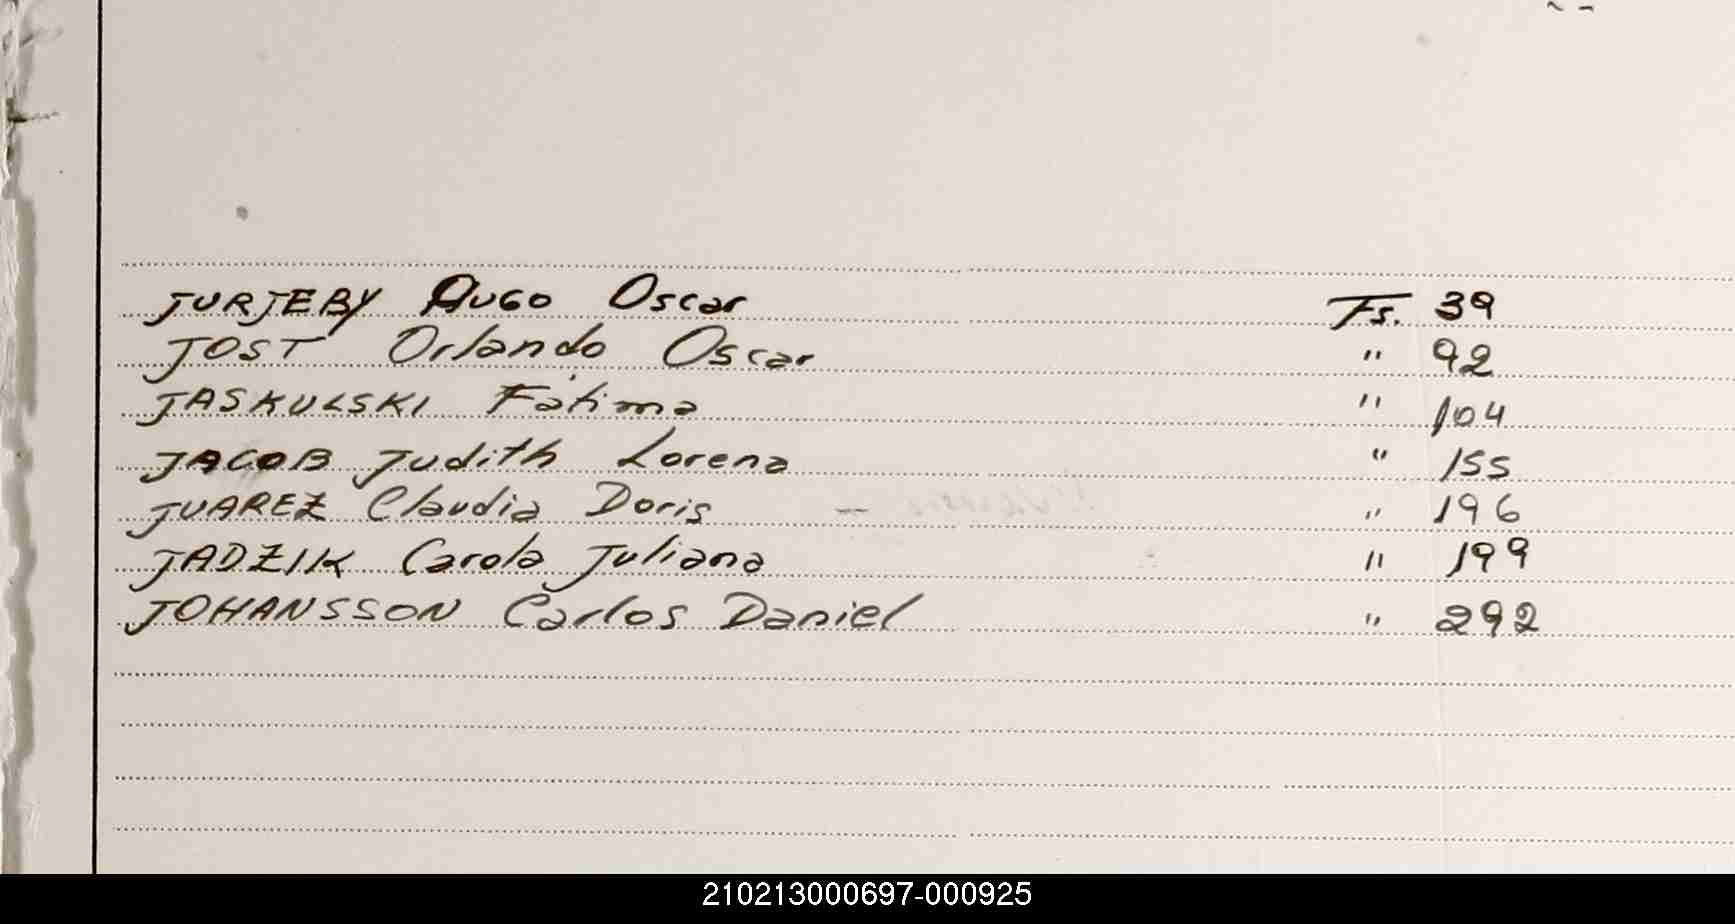 JURJEBY Hugo Oscar Fs. 39
JOST Orlando Oscar " 92
JASKULSKI Fátima " 104
JACOB Judith Lorena " 155
JUAREZ Claudia Doris " 196
JADZIK Carola Juliana " 199
JOHANSSON Carlos Daniel " 292
210213000697-000925